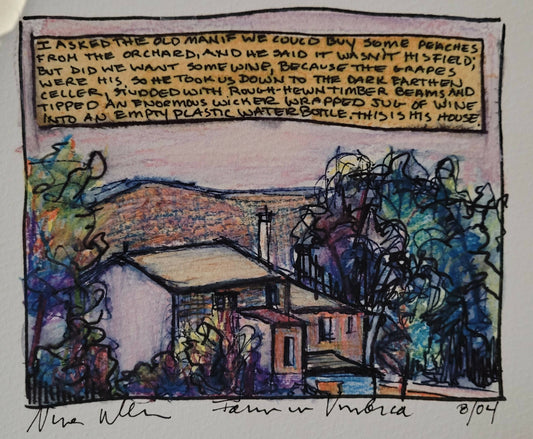 I ASKED THE OLD MAN IF WE COULD BUY SOME PEACHES
FROM THE ORCHARD, AND HE SAID IT WASN'T HIS FIELD;
BUT DID WE WANT SOME WINE, BECAUSE THE GRAPES
WERE HIS. SO HE TOOK US DOWN TO THE DARK EARTHEN
CELLER, STUDDED WITH ROUGH-HEWN TIMBER BEAMS AND
TIPPED AN ENORMOUS WICKER WRAPPED JUG OF WINE
INTO AN EMPTY PLASTIC WATER BOTTLE. THIS IS HIS HOUSE.
Farm in Umbria 8/04